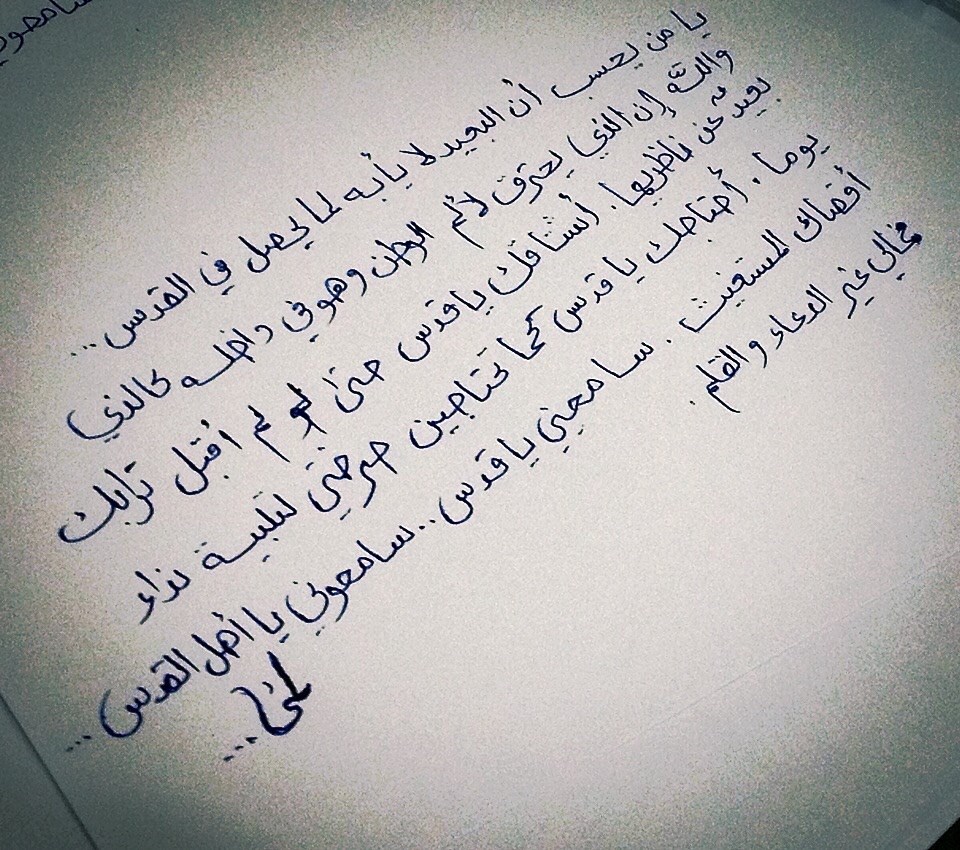 يا من يحسب أن البعيد لا يأبه لما يحصل في القدس ...
والله إن الذي يحترق لألم الوطن وهو في داخله كالذي
بعيدٌ عن ناظريها. أشتاقك يا قدس حتى لو لم أُقبل ترابك
يوما. أحتاجك يا قدس كما تحتاجين صرختي لتلبية نداء
أقصاك المستغيث. سامحيني يا قدس .. سامحوني يا أهل القدس ...
فمالي غير الدعاء والقلم.